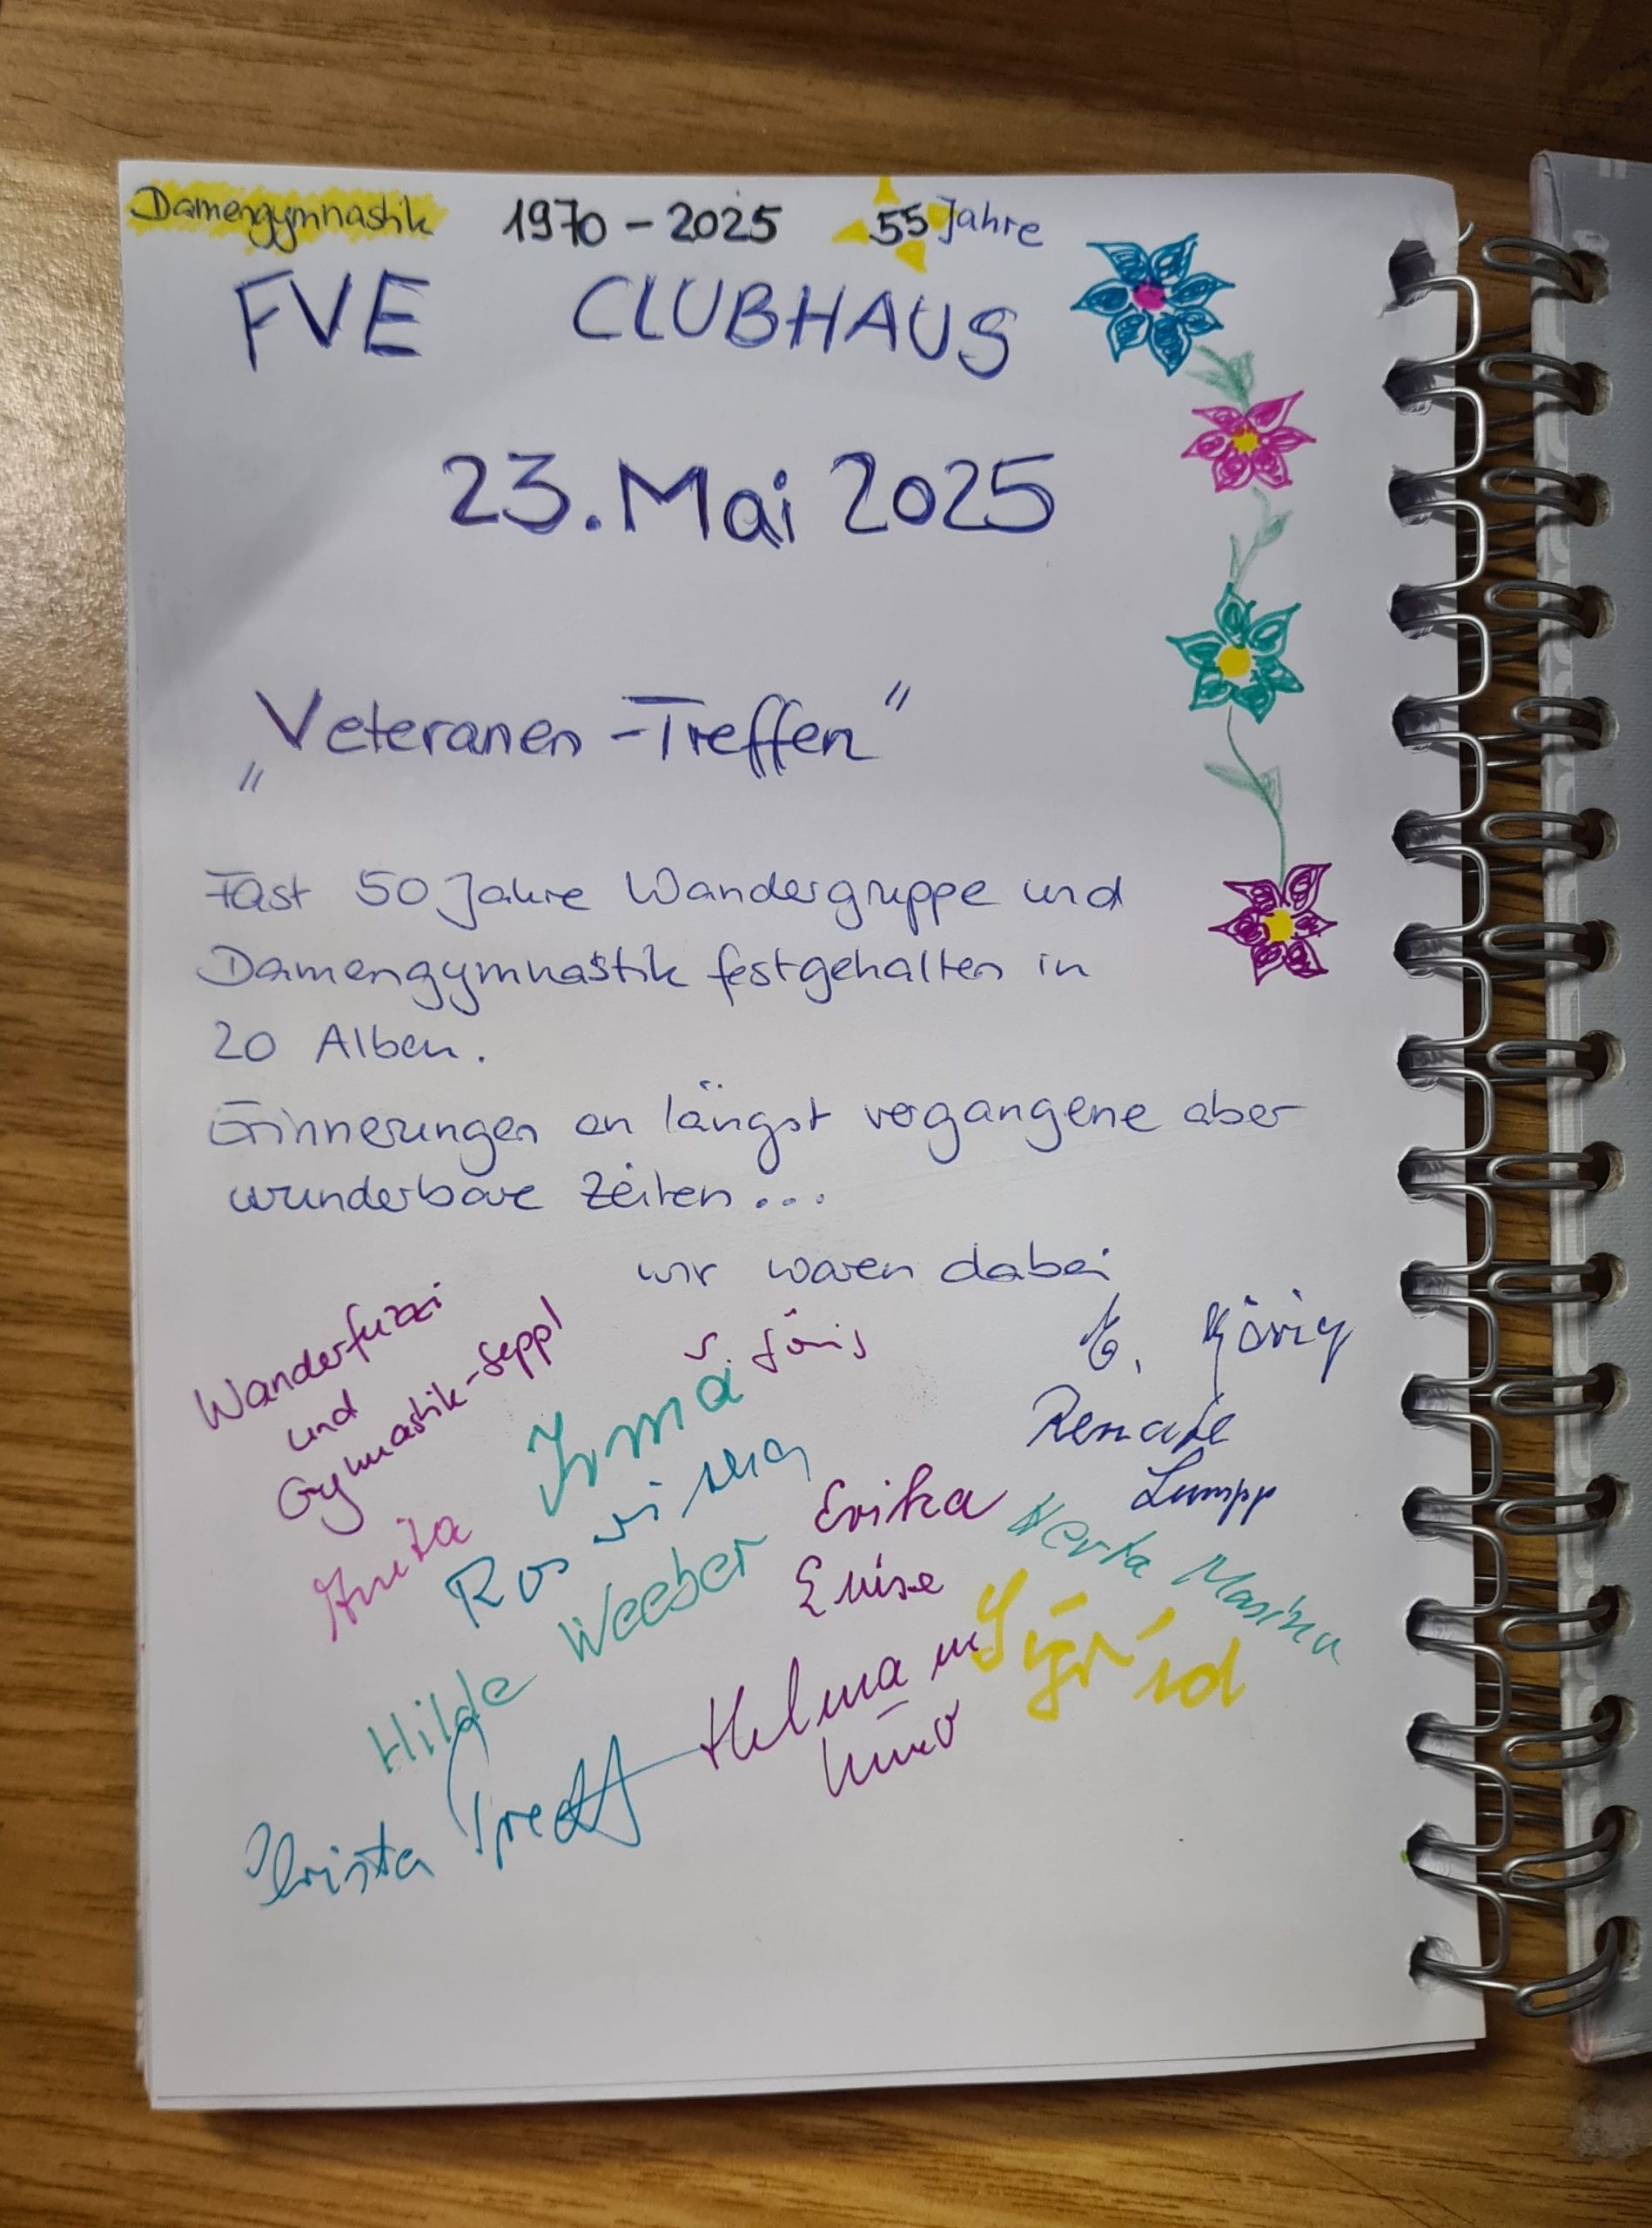 Damengymnastik 1970 - 2025 55 Jahre
FVE CLUBHAUS
23. Mai 2025
„Veteranen-Treffen"
Fast 50 Jahre Wandergruppe und
Damengymnastik festgehalten in
20 Alben.
Erinnerungen an längst vergangene aber
wunderbare Zeiten...
wir waren dabei
Wanderfuzzi
und
Gymnastik-Seppl
Irma
Renate
Lumpp
Anita
Erika
Herta
Hilde Weeber
Sigrid
Christa